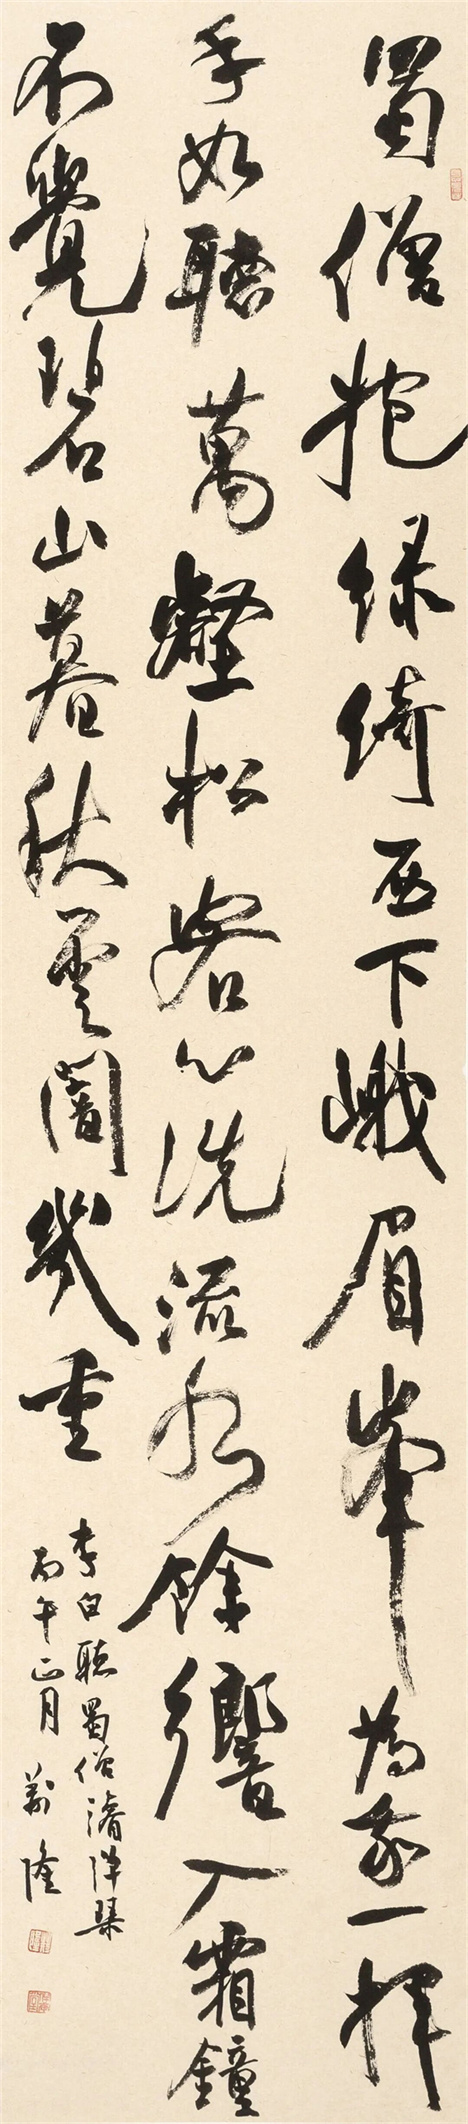 蜀僧抱绿绮西下峨眉峰为我一挥
手如聽萬壑松客心洗流水餘響入霜鐘
不覺碧山暮秋雲闇幾重
李白聽蜀僧濬弹琴
丙午正月 義隆